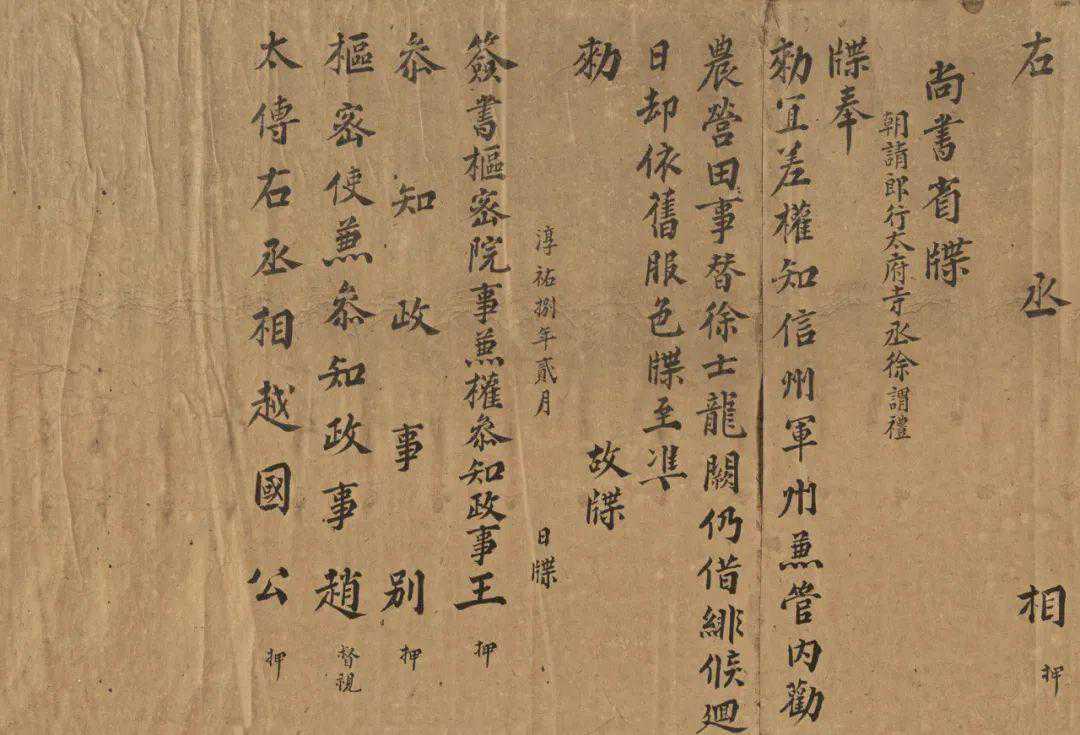 右丞相押
尚書省牒
朝請郎行太府寺丞徐謂禮
牒奉
勑宜差權知信州軍州兼管内勸
農營田事替徐士龍闕仍借緋候廻
日却依舊服色牒至準
勑
故牒
淳祐捌年貳月 日牒
簽書樞密院事兼權叅知政事王押
叅知政事别押
樞密使兼叅知政事趙督視
太傅右丞相越國公押